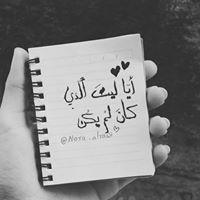 أيا ليت الذي
كان لم يكن